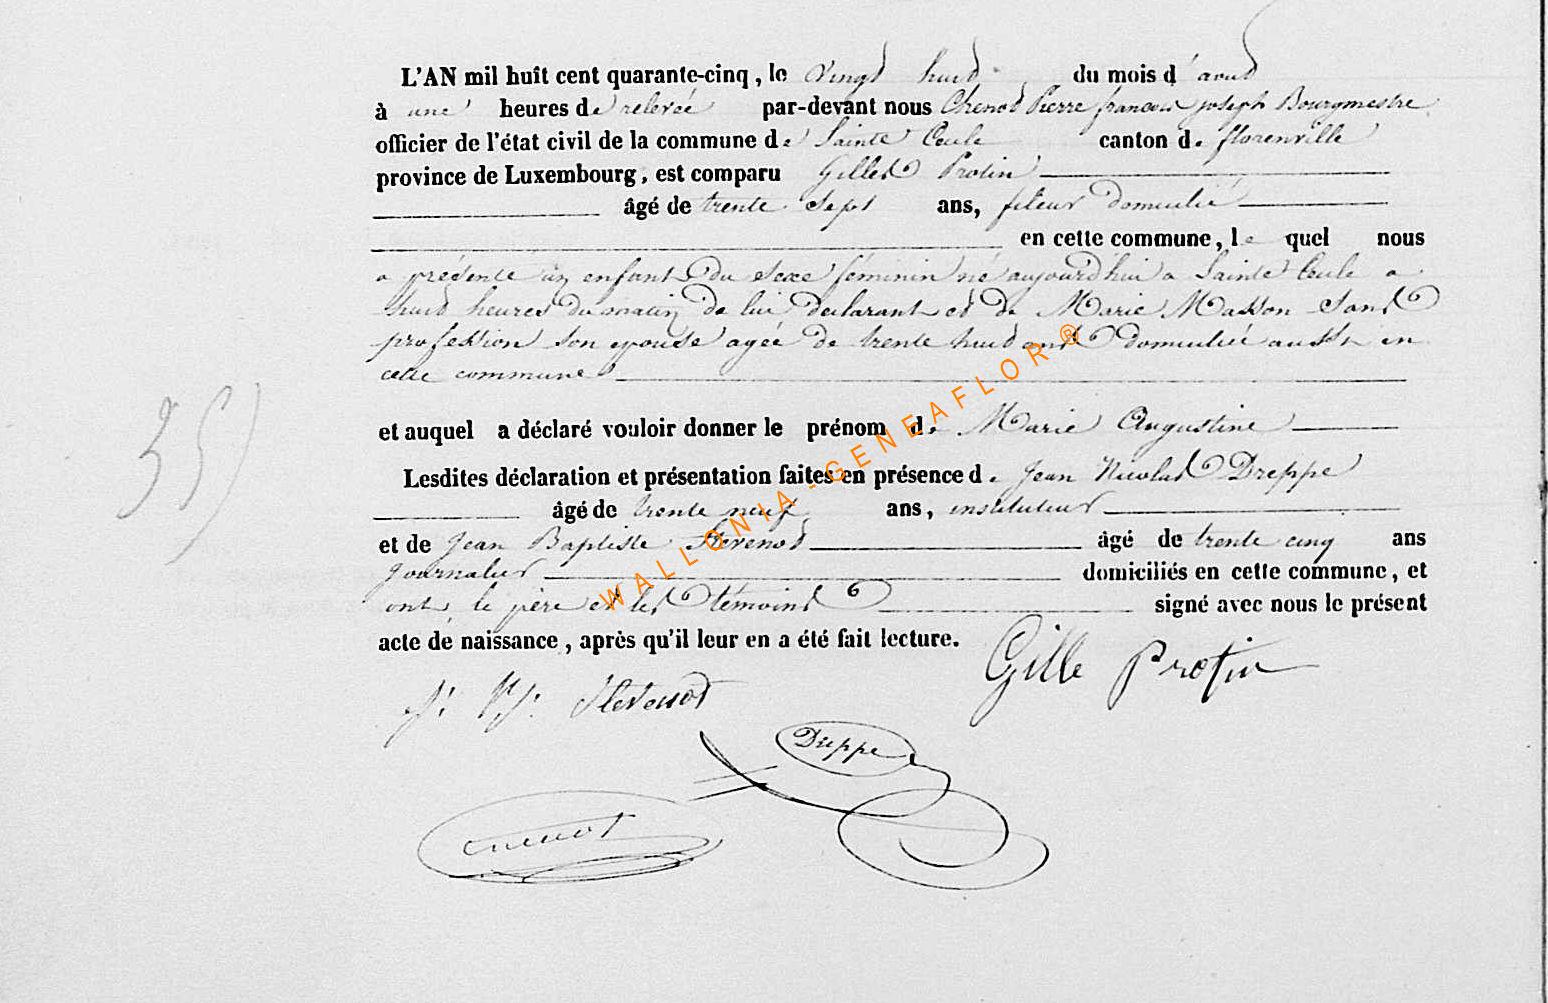 L'AN mil huit cent quarante-cinq, le vingt huit du mois d'aout
à une heures de relevée par-devant nous Chenot Pierre françois joseph Bourgmestre
officier de l'état civil de la commune de Sainte Cecile canton de florenville
province de Luxembourg, est comparu Gilles Protin
âgé de trente sept ans, fileur domicilié
en cette commune, le quel nous
a présenté un enfant du sexe féminin né aujourd'hui a Sainte Cecile a
huit heures du matin de lui declarant et de Marie Masson Sans
profession son epouse agée de trente huit ans domiciliée aussi en
cette commune
et auquel a déclaré vouloir donner le prénom de Marie Augustine
Lesdites déclaration et présentation faites en présence de Jean Nicolas Dreppe
âgé de trente neuf ans, instituteur
et de Jean Baptiste Stevenot âgé de trente cinq ans
journalier domiciliés en cette commune, et
ont le père et les témoins signé avec nous le présent
acte de naissance, après qu'il leur en a été fait lecture.
Gille Protin
Stevenot
Dreppe
35)
WALLONIA-GENEAFLOR®